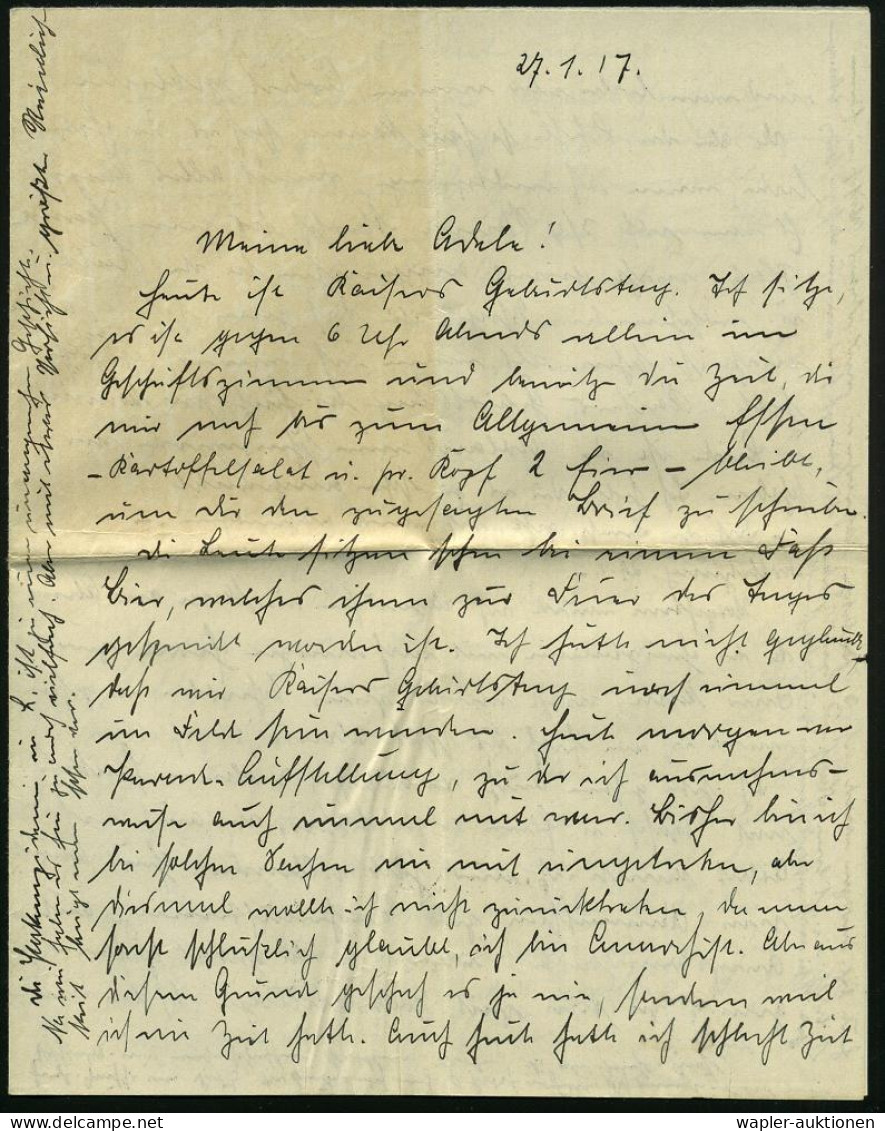 27.1.17.
Meine liebe Adele!
Heute ist Kaisers Geburtstag. Ich sitze,
es ist gegen 6 Uhr Abends allein im
Geschäftszimmer und benütze die Zeit, die
mir noch bis zum Allgemeinen Essen
- Kartoffelsalat u. pr. Kopf 2 Eier - bleibt,
um Dir den zugesagten Brief zu schreiben.
Die Leute sitzen schon bei einem Faß
Bier, welches ihnen zur Feier des Tages
gespendet worden ist. Ich hätte nicht geglaubt
daß wir Kaisers Geburtstag noch einmal
im Feld sein werden. Heute morgen war
Parade-Aufstellung, zu der ich ausnahms-
weise auch einmal mit war. Bisher bin ich
bei solchen Sachen nie mit eingetreten, aber
diesmal wollte ich nicht zurücktreten, da man
sonst schließlich glaubt, ich bin Anarchist. Aber aus
diesem Grund geschah es ja nie, sondern weil
ich nie Zeit hatte. Auch heute hatte ich schlecht Zeit
die in L. ist ja eine unangenehme Geschichte.
Na wir haben es hier ja auch vielfach. Aber mit etwas Vorsicht u.
Zeit beugt man schon vor.
wapler-auktionen